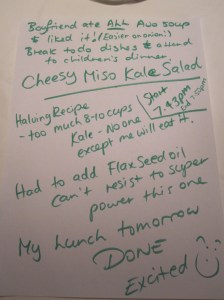 Boyfriend ate ALL Avo soup
& liked it! (Easier on onion!)
Break to do dishes & attend
to children's dinner.
Cheesy Miso Kale Salad
Halving Recipe
- too much 8-10 cups
Kale - No one
except me will eat it.
Start
7:43pm
Had to add Flax Seed oil
Can't resist to super
power this one
My lunch tomorrow
DONE
Excited